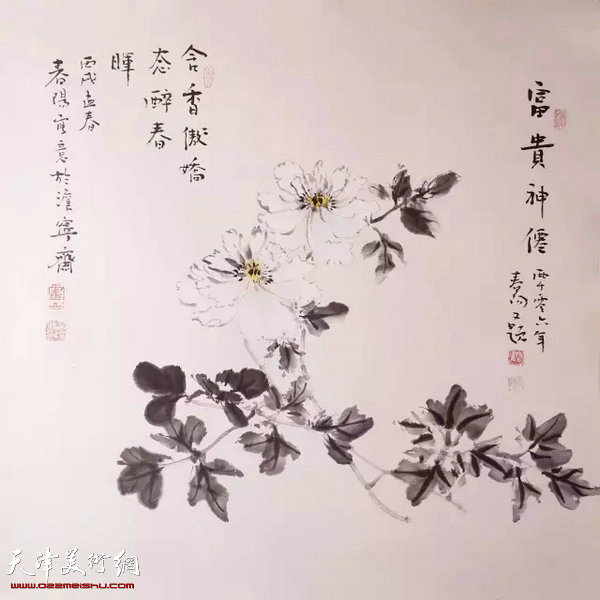 富貴神僊
二千零六年
春陽又題
含香傲嬌
态醉春
暉
丙戌孟春
春陽寫意於澹寧齋
天津美術網
www.022meishu.com